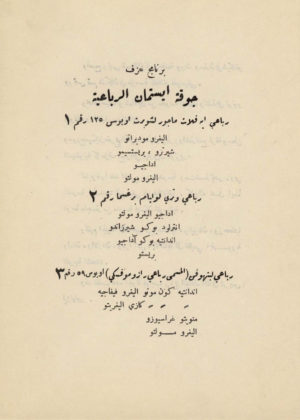 برنامج عزف
جوقة ايستمان الرباعية
رباعي اي فلات ماجور لشوبرت اوبوس ١٢٥ رقم ١
اليغرو موديراتو
شيرزو ، برستسيمو
اداجيو
اليغرو مولتو
رباعي وتري لوليام برغسما رقم ٢
اداجيو اليغرو مولتو
انترلود بوكو شيرزاندو
اندانتيه بوكو آداجيو
بريستو
رباعي لبتهوفن (المسمى رباعي رازوموفسكي) اوبوس ٥٩ رقم ٣
اندانتيه كون موتو اليغرو فيفاجيه
" " كازي اليغريتو
منويتو غراسيوزو
اليغرو مولتو